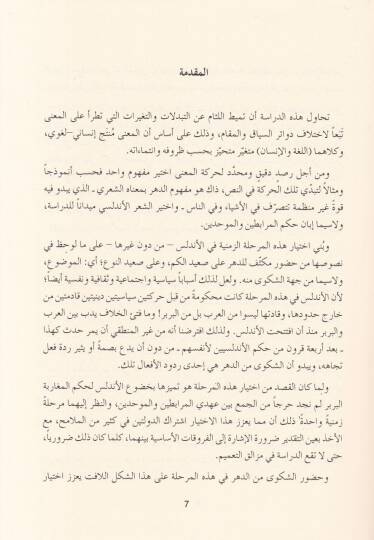 المقدمة
تحاول هذه الدراسة أن تميط اللثام عن التبدلات والتغيرات التي تطرأ على المعنى
تَبَعاً لاختلاف دوائر السياق والمقام، وذلك على أساس أن المعنى مُنتَج إنساني-لغوي،
وكلاهما (اللغة والإنسان) متغيّر متحيّز بحسب ظروفه وانتماءاته.
ومن أجل رصدٍ دقيقٍ ومحدَّد لحركة المعنى اختير مفهوم واحد فحسب أنموذجاً
ومثالاً لتبدّي تلك الحركة في النص، ذاك هو مفهوم الدهر بمعناه الشعري ـ الذي يبدو فيه
قوةً غير منظمة تتصرّف في الأشياء وفي الناس ـ واختير الشعر الأندلسي ميداناً للدراسة،
ولاسيما إبان حكم المرابطين والموحدين.
وبُني اختيار هذه المرحلة الزمنية في الأندلس - من دون غيرها - على ما لوحظ في
نصوصها من حضور مكثّف للدهر على صعيد الكم، وعلى صعيد النوع؛ أي: الموضوع،
ولاسيما من جهة الشكوى منه. ولعل لذلك أسباباً سياسية واجتماعية وثقافية ونفسية أيضاً؛
لأن الأندلس في هذه المرحلة كانت محكومةً من قبل حركتين سياسيتين دينيتين قادمتين من
خارج حدودها، وقادتها ليسوا من العرب بل من البربر! وما فتئ الخلاف يدب بين العرب
والبربر منذ أن افتتحت الأندلس. ولذلك افترضنا أنه من غير المنطقي أن يمر حدث كهذا
ـ بعد أربعة قرون من حكم الأندلسيين لأنفسهم ـ من دون أن يدع بصمةً أو يثير ردة فعل
تجاهه، ويبدو أن الشكوى من الدهر هي إحدى ردود الأفعال تلك.
ولما كان القصد من اختيار هذه المرحلة هو تميزها بخضوع الأندلس لحكم المغاربة
البربر لم نجد حرجاً من الجمع بين عهدي المرابطين والموحدين، والنظر إليهما مرحلةً
زمنيةً واحدةً؛ ذلك أن مما يعزز هذا الاختيار اشتراك الدولتين في كثير من الملامح، مع
الأخذ بعين التقدير ضرورة الإشارة إلى الفروقات الأساسية بينهما، كلما كان ذلك ضرورياً،
حتى لا تقع الدراسة في مزالق التعميم.
وحضور الشكوى من الدهر في هذه المرحلة على هذا الشكل اللافت يعزز اختيار
7